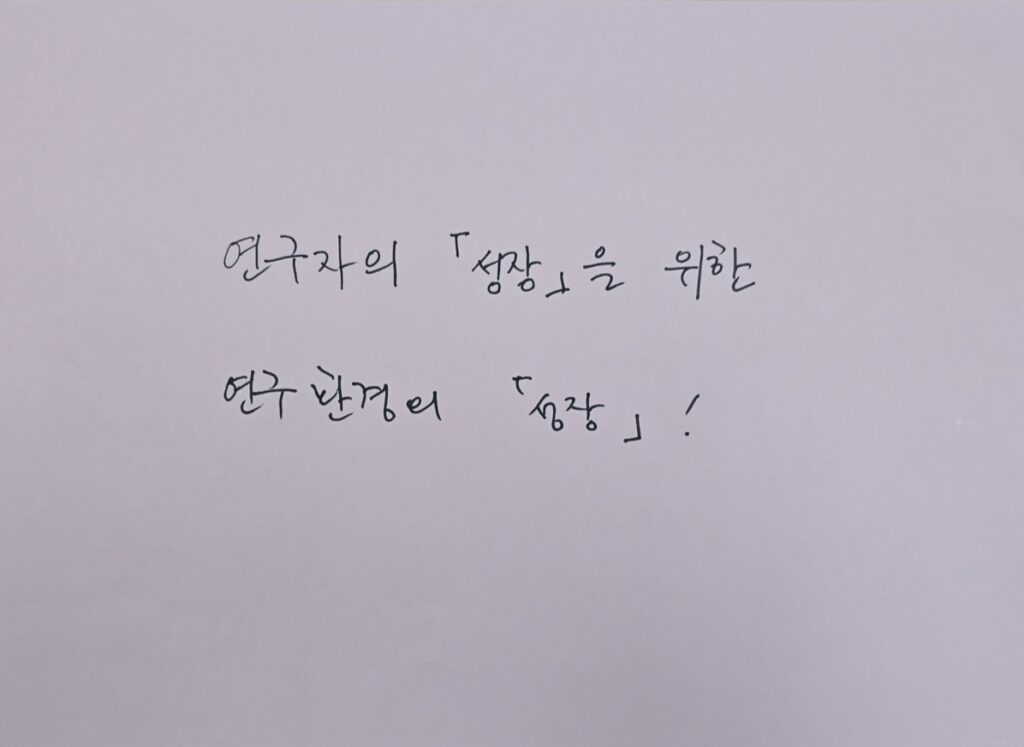 연구자의 「성장」을 위한
연구 환경의 「성장」!